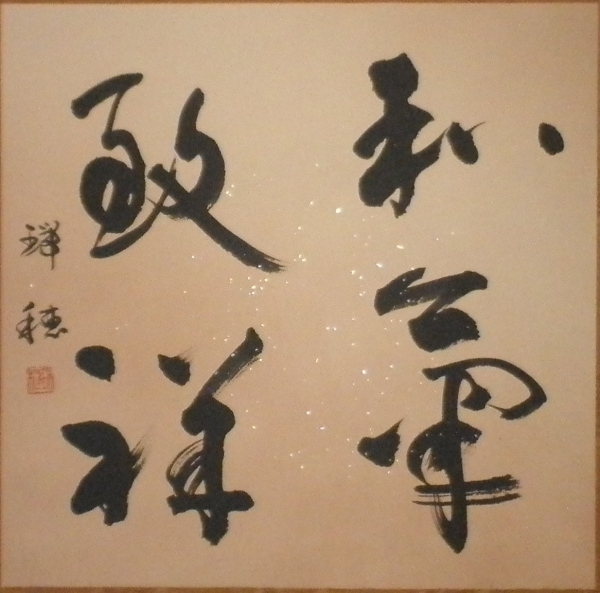 和氣
致祥
穂